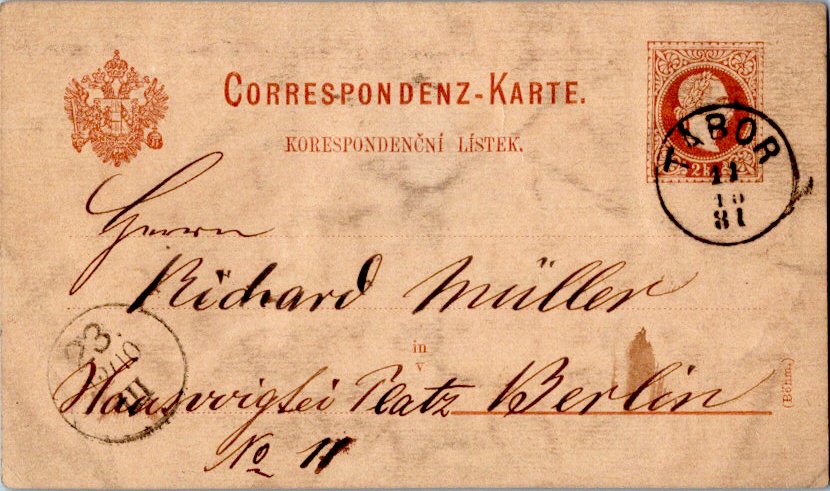 CORRESPONDENZ-KARTE.
KORESPONDENČNÍ LÍSTEK.
2 kr.
TABOR
11
10
81
Herrn
Richard Müller
in
v
Platz Berlin
No 11
23.
III
(Böhm.)